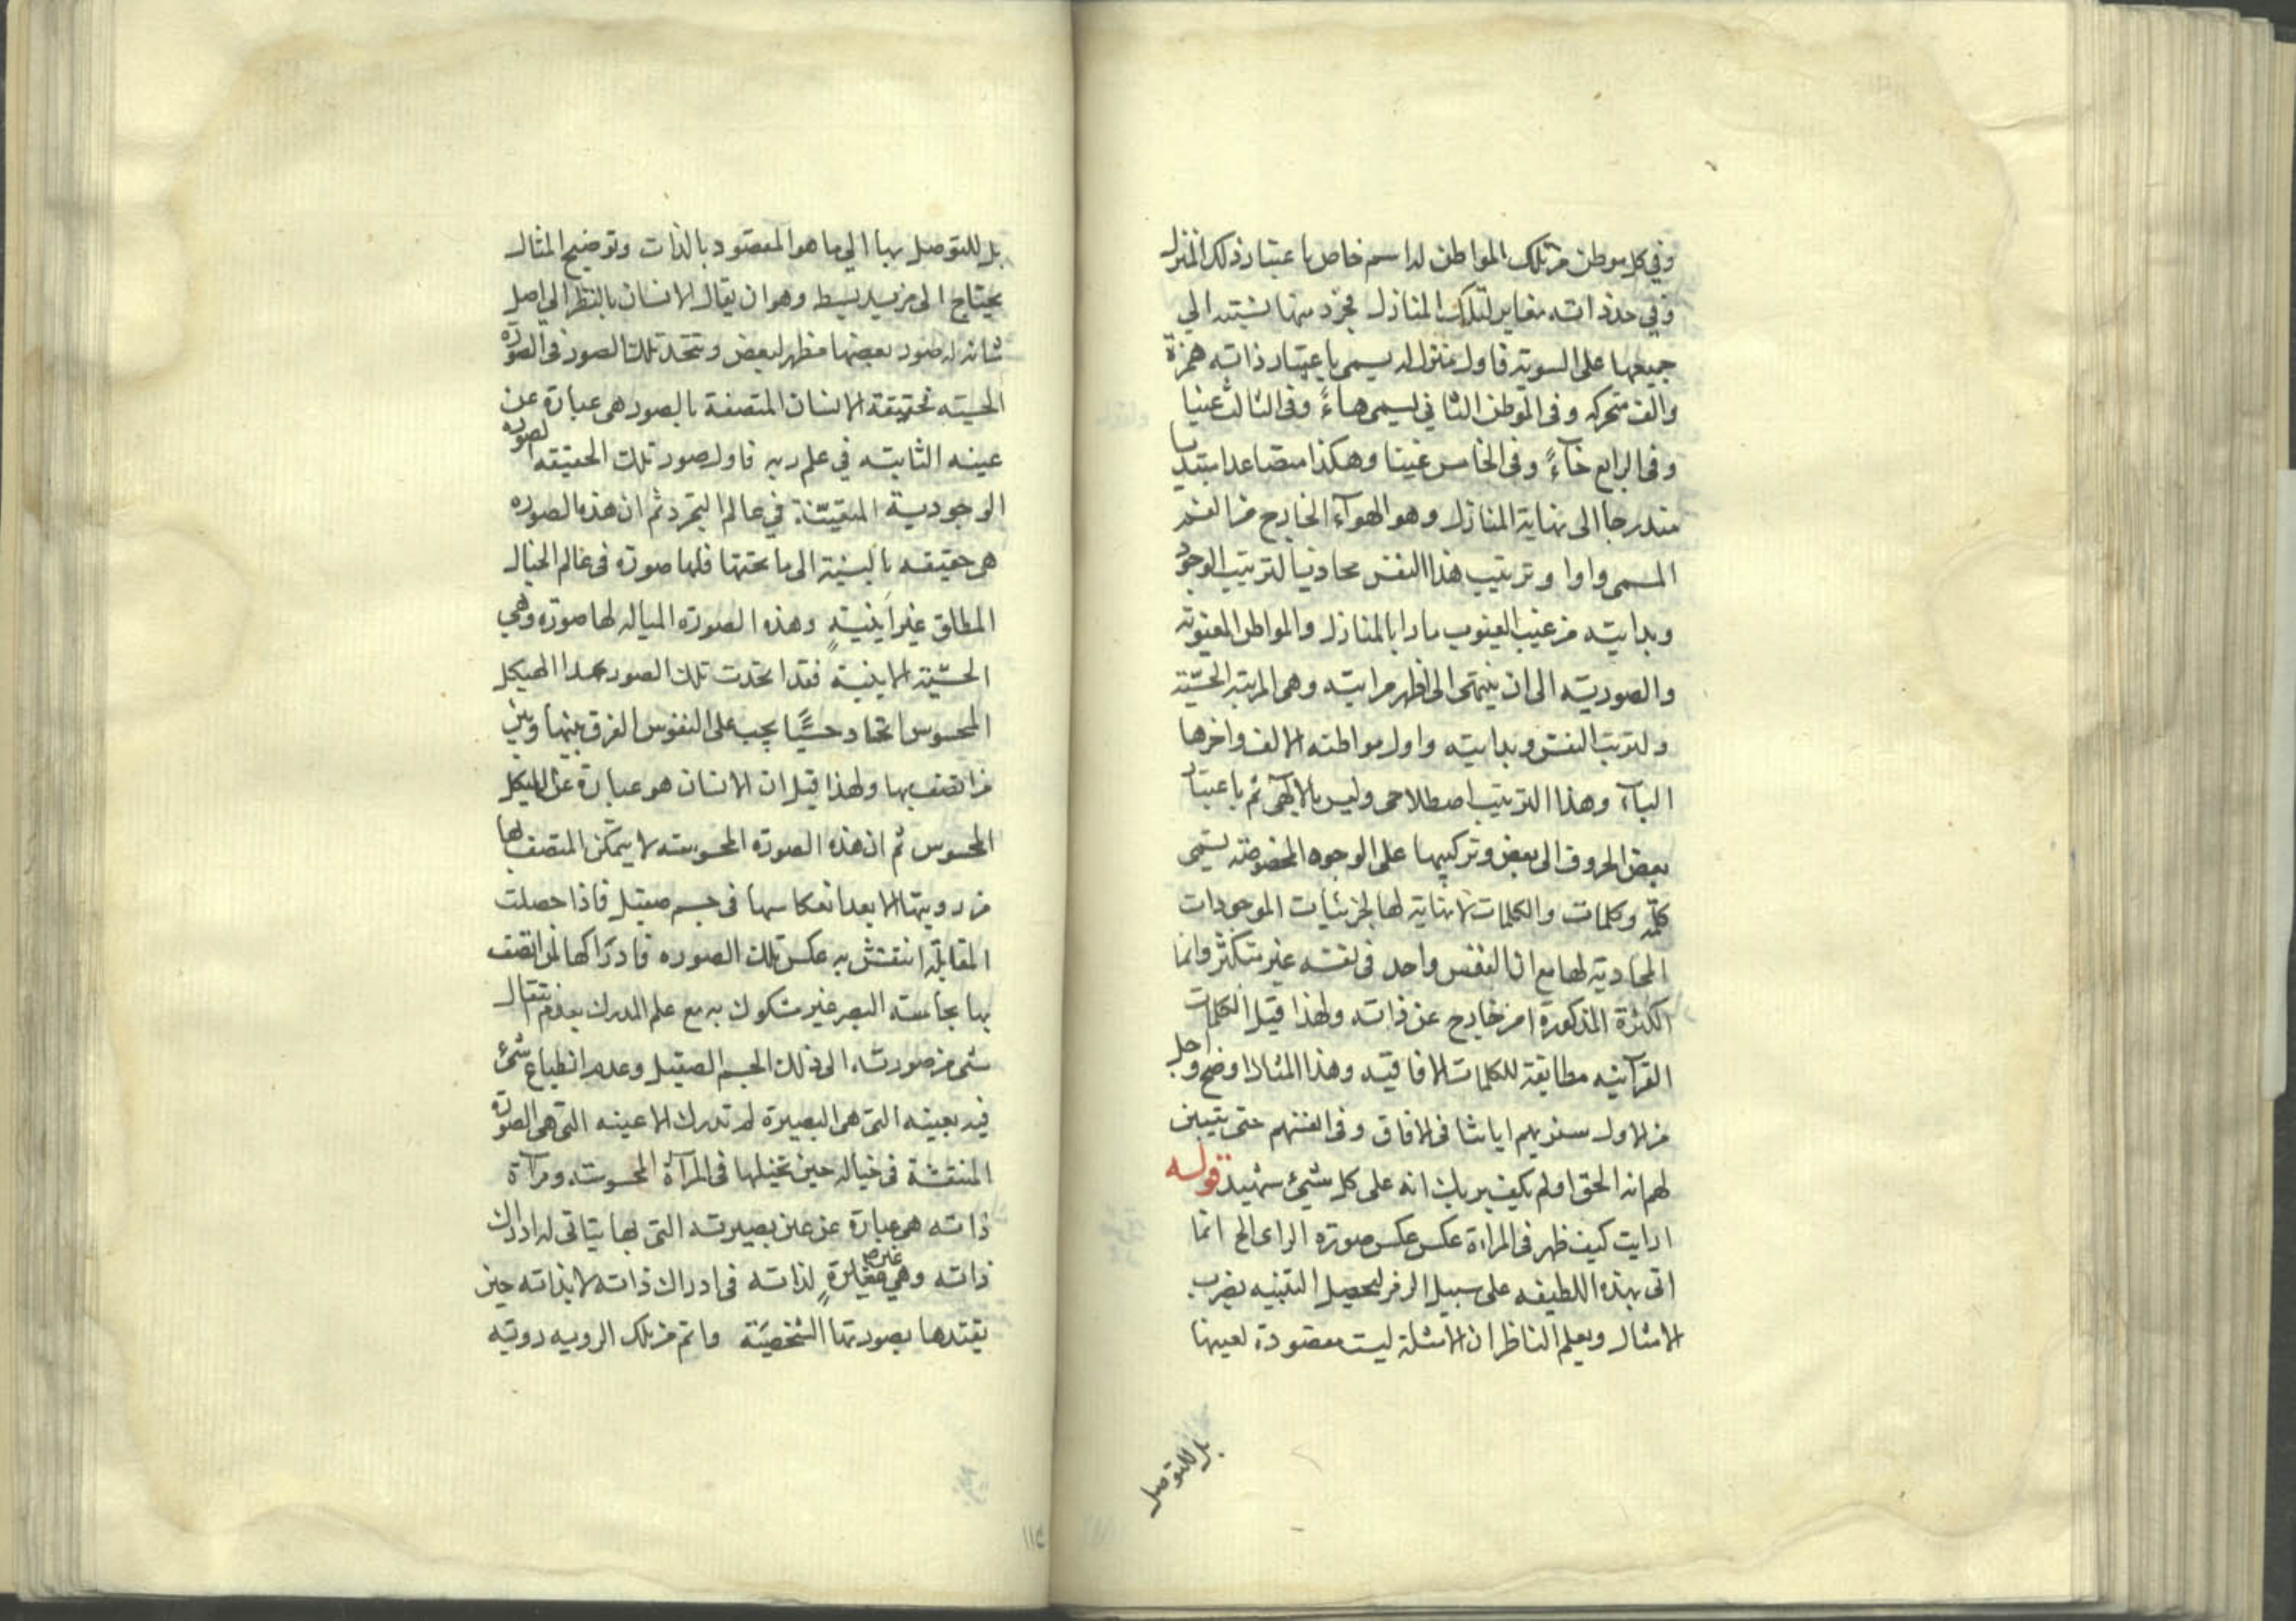 وفي كل موطن من تلك المواطن له اسم خاص باعتبار ذلك المنزل
وفي حد ذاته مغاير لتلك المنازل مجرد منها نسبته الي
جميعها على السوية فاول منزل له يسمى باعتبار ذاته همزة
والف متحركه وفى الموطن الثاني يسمى هاءً وفى الثالث عينا
وفى الرابع حآءً وفى الخامس غينا وهكذا متصاعدا
مندرجا الى نهاية المنازل وهو الهوآء الخارج من الفم
المسمى واوا وترتيب هذا النفس محاذيا لترتيب الوجود
وبدايته من غيب الغيوب مارا بالمنازل والمواطن المعنويه
والصوريته الى ان ينتهى الى اظهر مراتبه وهى المرتبة الحسّيّة
ولترتيب النفس وبدايته واول مواطنه الالف واخرها
اليآء وهذا الترتيب اصطلاحى وليس بالالهى ثم باعتبار
بعض الحروف الى بعض وتركيبها على الوجوه المخصوصة يسمى
كلمة وكلمات والكلمات لا نهاية لها لجزئيات الموجودات
المحاذية لها مع ان النفس واحد فى نفسه غير متكثر وانما
الكثرة المذكورة امر خارج عن ذاته ولهذا قيل الكلمات
القرآنيه مطابقة للكلمات الافاقيه وهذا المثال اوضح واجل
من الاول سنريهم اياتنا فى الافاق وفى انفسهم حتى يتبين
لهم انه الحق اولم يكف بربك انه على كل شيئ شهيد قوله
ارايت كيف ظهر فى المراة عكس عكس صورة الراى الخ انما
اتى بهذه اللطيفه على سبيل الرمز ليحصل التنبيه بضرب
الامثال ويعلم الناظر ان الامثلة ليست مقصودة لعينها
بل للتوصل
بل للتوصل بها الي ما هو المقصود بالذات وتوضيح المثال
يحتاج الى مزيد بسط وهو ان يقال الانسان بالنظر الى اصل
شانه له صور بعضها مظهر لبعض وتتحد تلك الصور فى الصورة
الحسيته فحقيقة الانسان المتصفة بالصور هى عبارة عن
عينه الثابته في علم ربه فاول صور تلك الحقيقه الصوره
الوجودية المتعيّنة في عالم التجرد ثم ان هذه الصوره
هى حقيقه بالنسبة الى ما تحتها فلها صورة فى عالم الخيال
المطلق غير اينيةٍ وهذه الصورة المياله لها صورة وهي
الحسّيّة الاينية فقد اتحدت تلك الصور بهذا الهيكل
المحسوس اتحاد حسّيًّا يجب على النفوس الفرق بينها وبين
من اتصف بها ولهذا قيل ان الانسان هو عبارة عن الهيكل
المحسوس ثم ان هذه الصورة المحسوسته لا يتمكن المتصف بها
من رويتها الا بعد انعكاسها فى جسم صقيل فاذا حصلت
المقابلة انتقش به عكس تلك الصوره فادراكها لمن اتصف
بها بحاسته البصر غير مشكوك به مع علم المدرك بعدم انتقال
شى من صورته الى ذلك الجسم الصقيل وعدم انطباع شئ
فيه بعينه التى هى البصيرة لم تدرك الا عينه التى هى الصورة
المنتقشة فى خياله حين تخيلها فى المرآة المحسوسه ومرآة
ذاته هى عبارة عن عين بصيرته التى بها يتاتى له ادراك
ذاته وهي غير مغايرةٍ لذاته فى ادراك ذاته لا بذاته حين
يقيدها بصورتها الشخصيّة وما تم من تلك الرويه رويته
١١٥